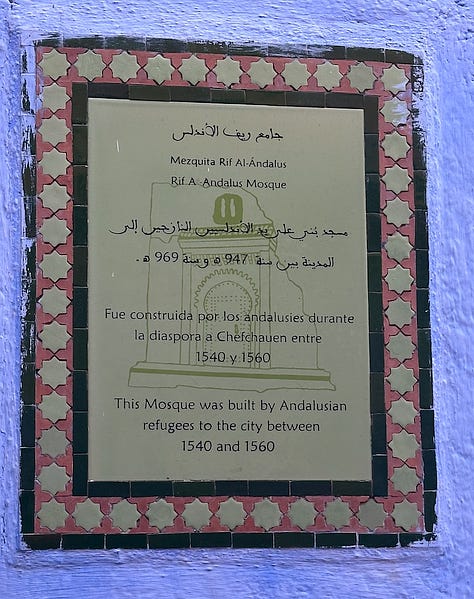 جامع ريف الأندلس
Mezquita Rif Al-Ándalus
Rif A Andalus Mosque
مسجد بُني على يد الأندلسيين النازحين إلى
المدينة بين سنة 947 ه وسنة 969 ه.
Fue construida por los andalusies durante
la diaspora a Chefchauen entre
1540 y 1560
This Mosque was built by Andalusian
refugees to the city between
1540 and 1560